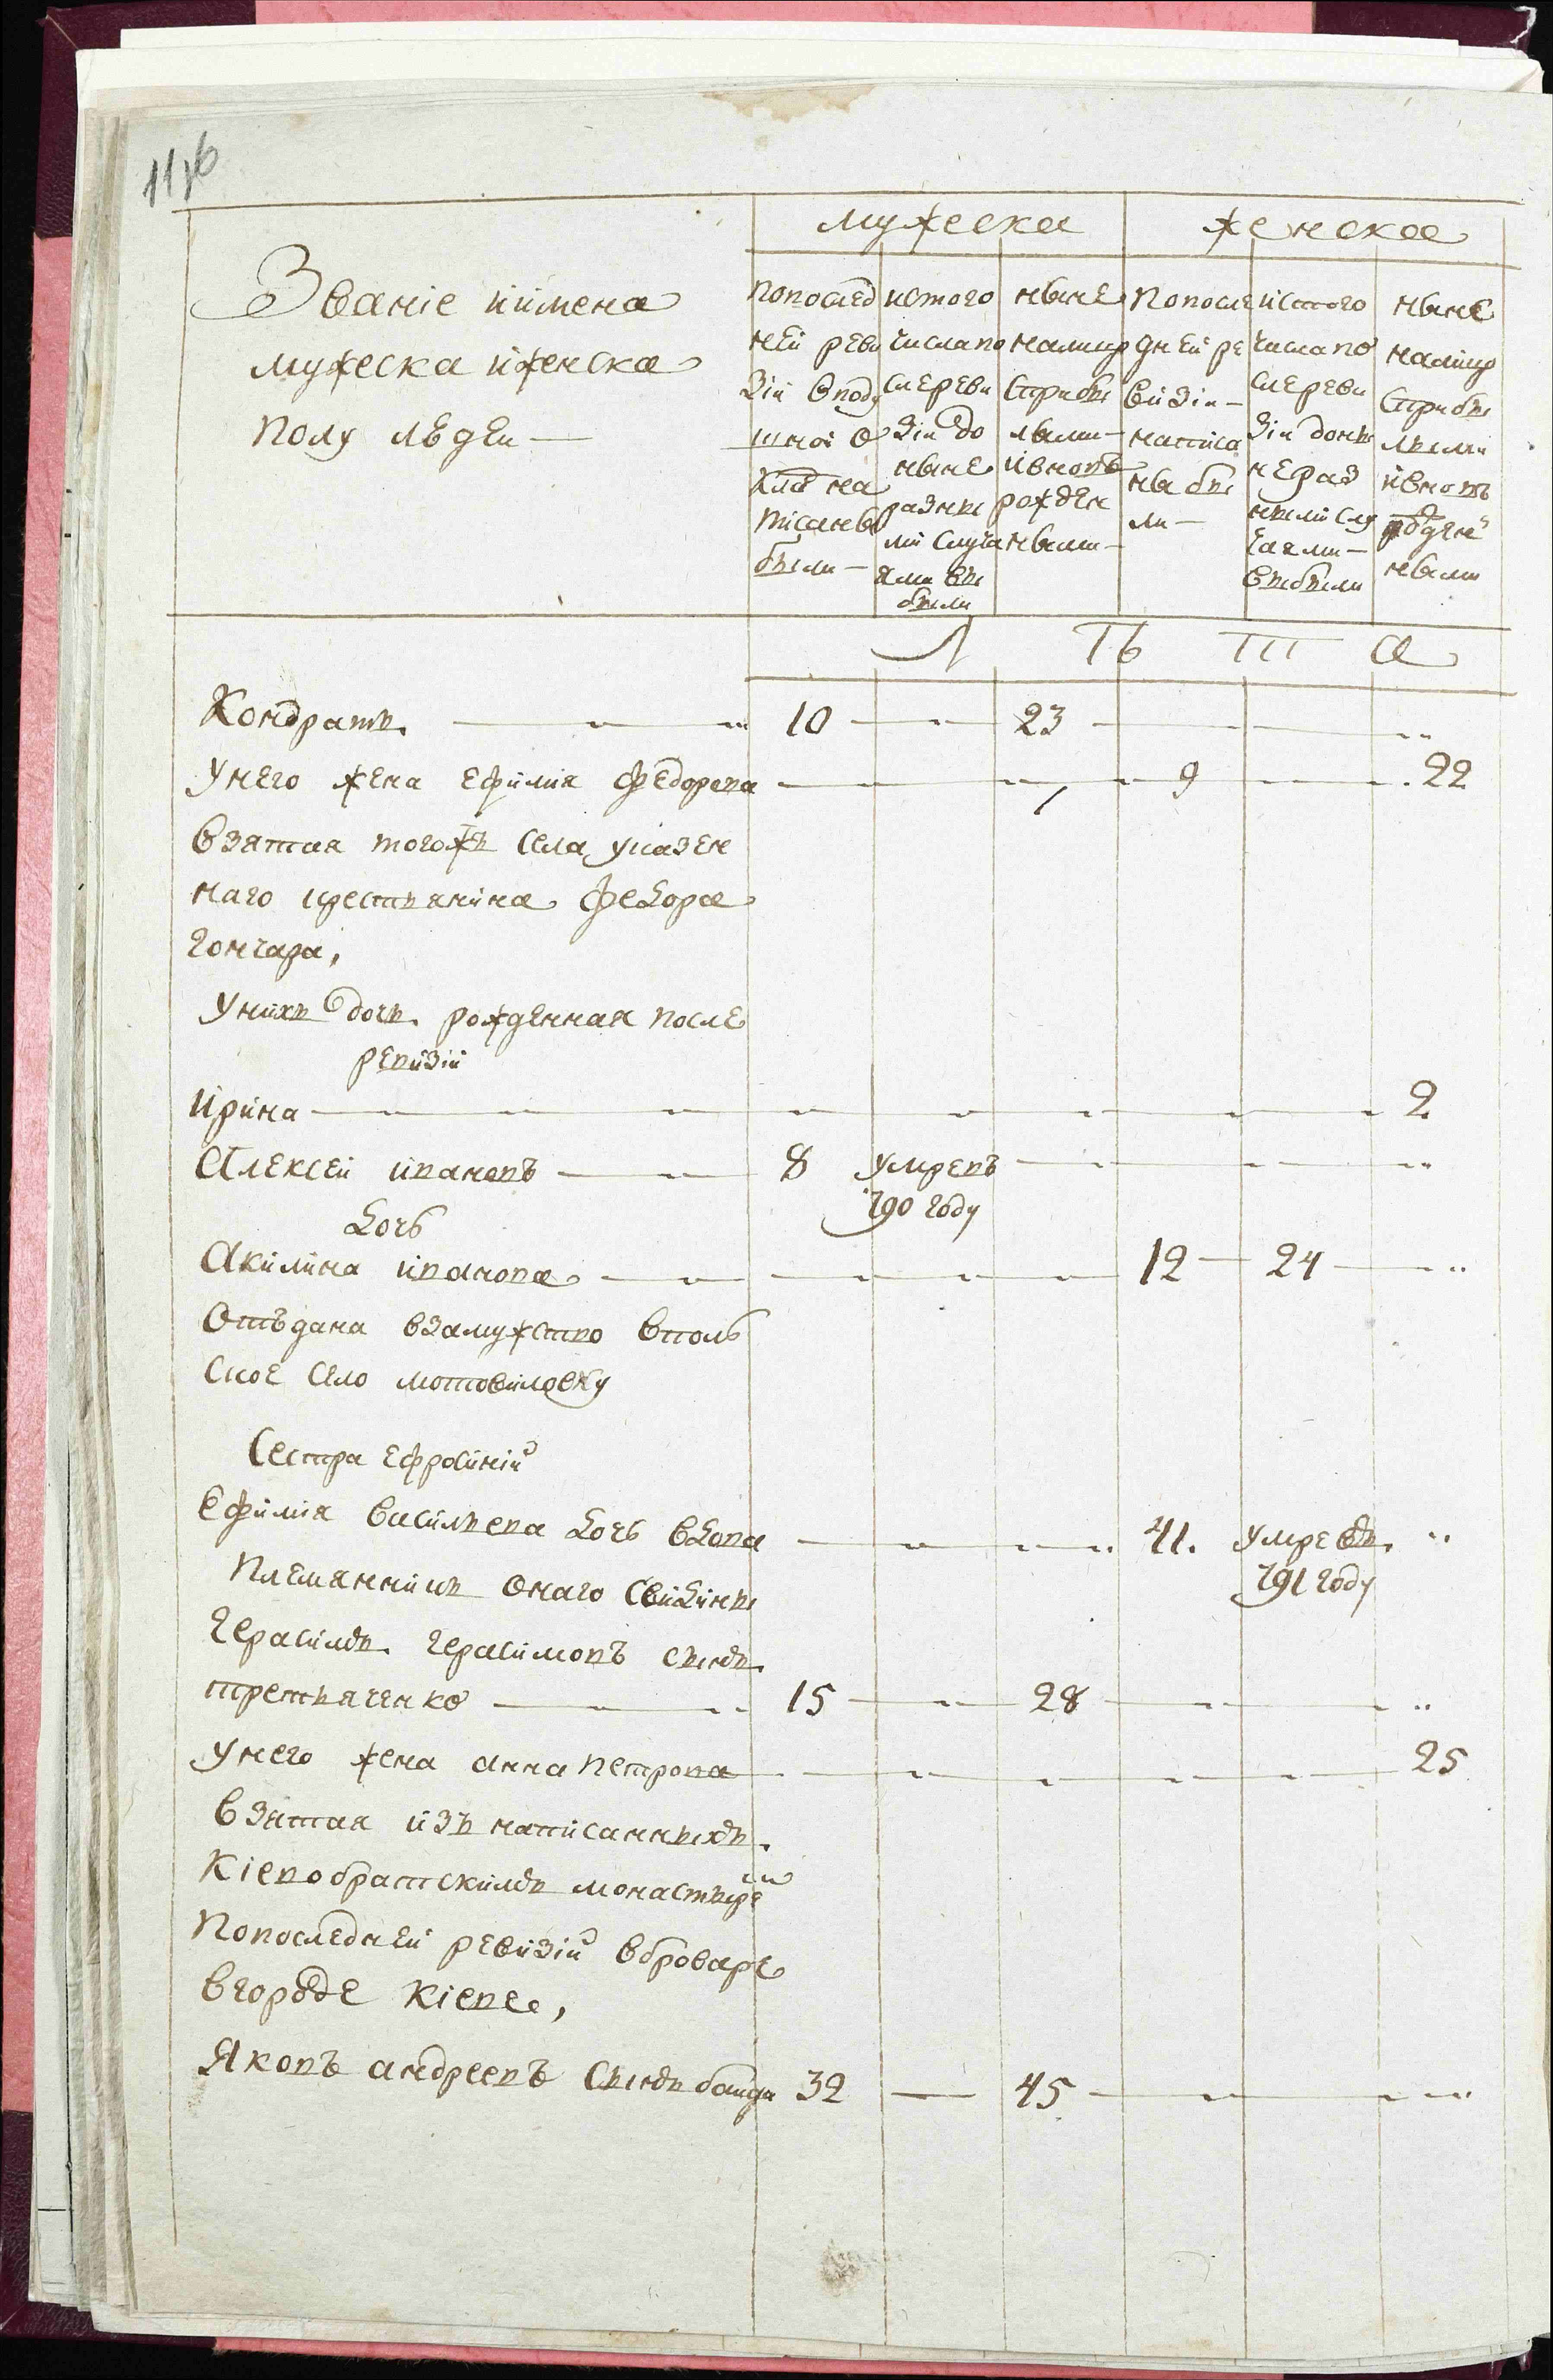 1176
мужеска
женска
Званіе иимена
мужеска иженска
полу людеи
попослед
ней реви
зіи вподу
шной о
кладъ на
писаны
были
истого
числа по
сле реви
зіи до
ныне
разны
ми случа
ями вы
были
ныне
налицо
сприбы
лыми
ивновь
рожден
ными
Попосле
дней ре
визіи
написа
ны бы
ли
истого
числа по
сле реви
зіи доны
не раз
ными слу
чаями
выбыли
ныне
налицо
сприбы
лыми
ивновь
рожден
ными
Л Ѣ Т а
Кондратъ 10 23
Унего жена ефимия федорова 9 22
взятая тогожъ села указен
наго крестьянина федора
гончара,
Унихъ дочь рожденная после
ревизіи
Ирина 2
Алексей ивановъ 8 умревъ
790 году
дочь
Акилина иванова 12 24
Отъдана взамужство вполь
ское село мотовиловку
Сестра ефросиніи
Ефимия васильева дочь вдова 41. умре
791 году
Племянникъ онаго
Герасимъ герасимовъ сынъ
третьяченко 15 28
Унего жена анна петрова 25
взятая изъ написанныхъ
Кіевобратскимъ монастыре
попоследней ревизіи вброваре
вгороде Кіеве,
Яковъ андреевъ сынъ банда 32 45